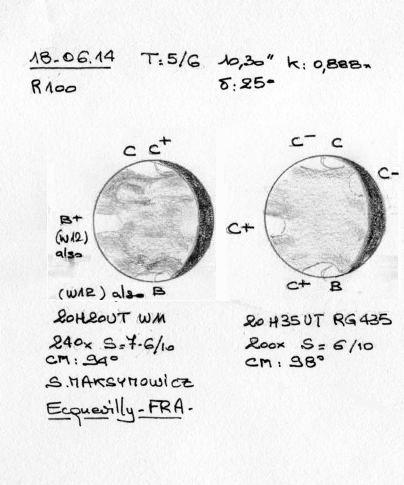 18.06.14 T:5/6 10,30" k:0,888
R100 δ:25°
C C+
B+
(W12)
also
(W12) also B
20H20UT WM
240x S=7-6/10
CM: 94°
S.MAKSYMOWICZ
Ecquevilly-FRA-
C- C
C-
C+
C+ B
20H35UT RG435
200x S=6/10
CM: 98°